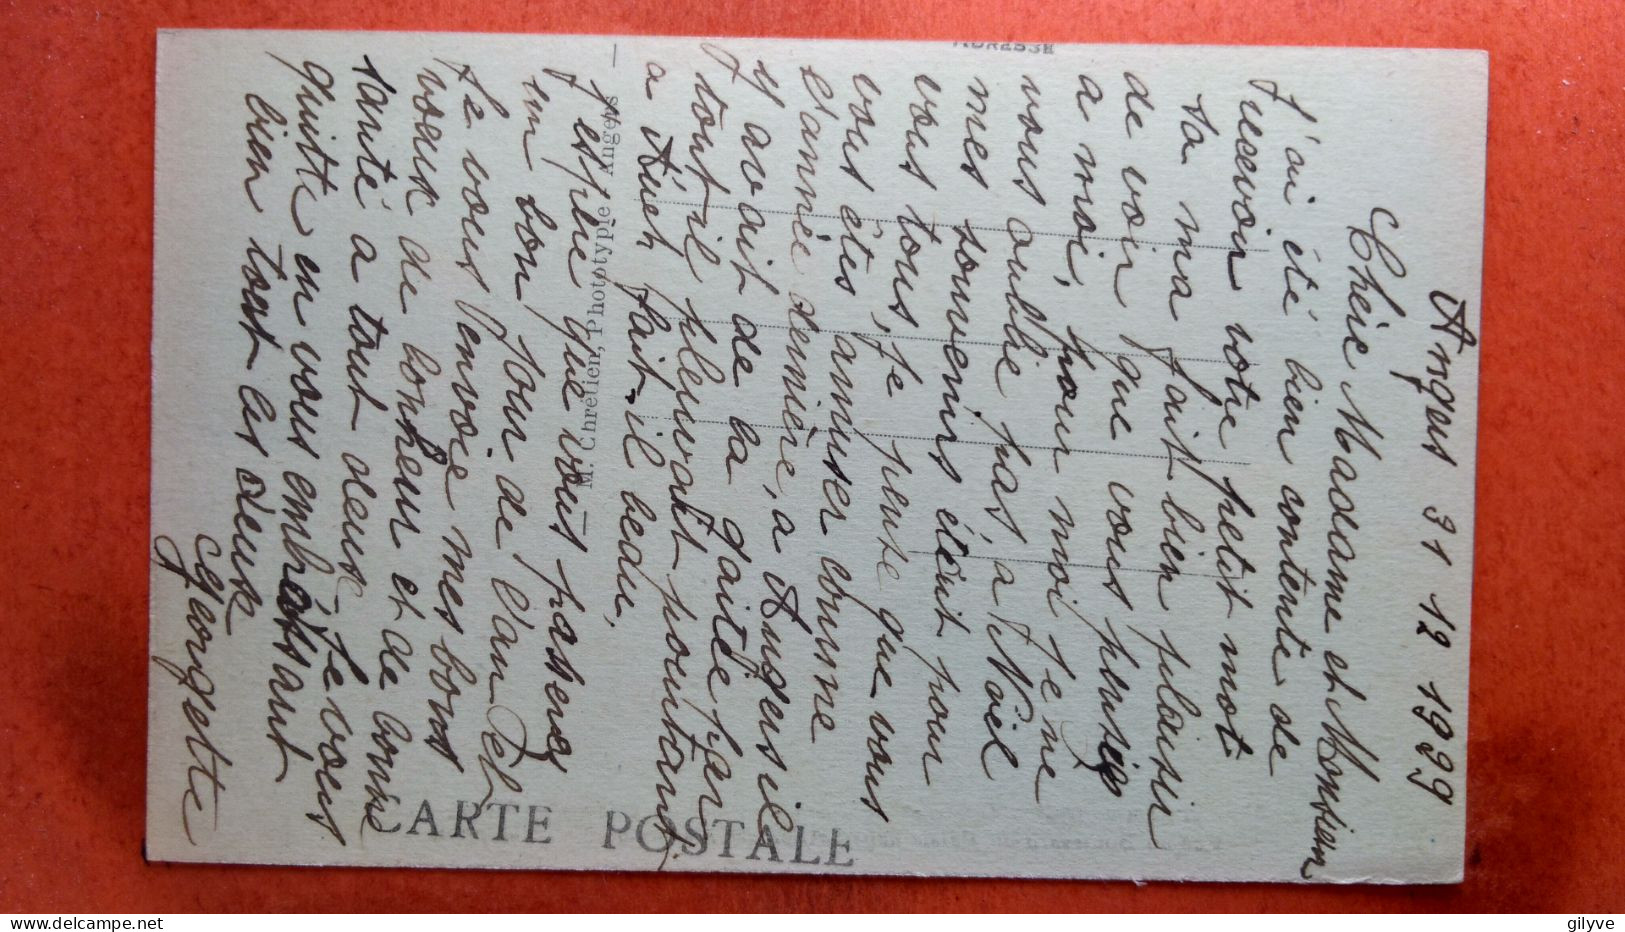 Angers 31 12 1929
Chère Maddame et Monsieur
J'ai été bien contente de
recevoir votre petit mot
sa ma fait bien plaisir
de voir que vous pensez
a moi, pour moi je ne
vous oublie pas, a Noël
mes souvenirs étént pour
vous tous, je pense que vous
vous êtes amuser comme
l'année dernière, a Angers il
y avait de la gaité par
tout il pleuvait pourtant
a fait il beau,
J'espère que vous passerez
un bon jour de l'an
Je vous envoie mes bons
voeux de bonheur et de bonne
santé a tout deux - Je vous
quitte en vous embrassant
bien tout les deux
Georgette
CARTE POSTALE
ADRESSE
M. Chrétien, Phototypie Angers
gilyve